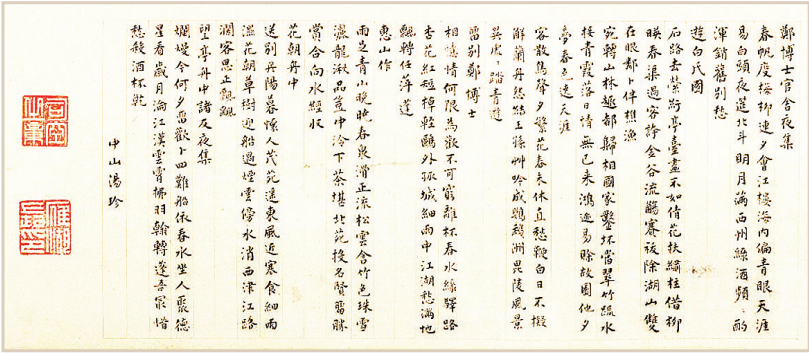 鄭博士官舍夜集
春帆度梅柳連夕會江樓海內偏青眼天涯
易白頭夜遥北斗明月滿西州綠酒頻〃酌
渾銷舊別愁
遊白氏園
石路去縈紆亭臺畫不如倚花扶繡柱借柳
映春渠過客誇金谷流觴賽祓除湖山雙
在眼鄰卜伴樵漁
宛轉山林趣都歸相國家鑿坏當翠竹疏水
接青霞落日情無已來鴻迹易賒故園他夕
夢春色遶天涯
客散鳥聲夕繁花春未休直愁鞭白日不擬
解蘭舟怨結王孫艸吟成鸚鵡洲毘陵風景
美處〃踏青遊
留別鄭博士
相憶情何限為歡不可窮離杯春水綠驛路
杏花紅短棹輕鷗外孤城細雨中江湖愁滿地
飄轉任萍蓬
惠山作
雨青山晚春泉滑正流松雲含竹色珠雪
灑龍湫品豈中泠下茶堪北苑投名賢留勝
賞合向水經收
花朝舟中
送別丹陽暮憐人茂苑遥東風近寒食細雨
濕花朝草樹迎船過煙雲傍水消西津江路
濶客思正飄飄
望亭舟中諸友夜集
爛熳今何夕留歡卜四難船依春水坐人聚德
星看歲月淪江漢雲霄拂羽翰轉蓬吾最惜
愁殺酒杯乾
中山湯珍